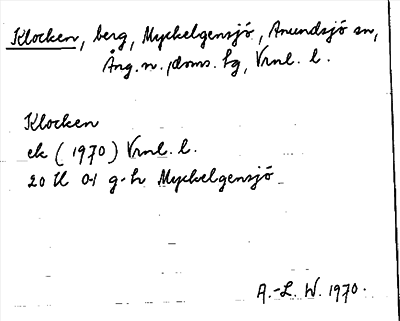 Klocken, berg, Myckelgensjö, Anundsjö sn,
Ång. n. doms. hg, Vrnl. l.
Klocken
ek (1970) Vrnl. l.
20 H 0-1 g-h Myckelgensjö
A.-L. W. 1970.